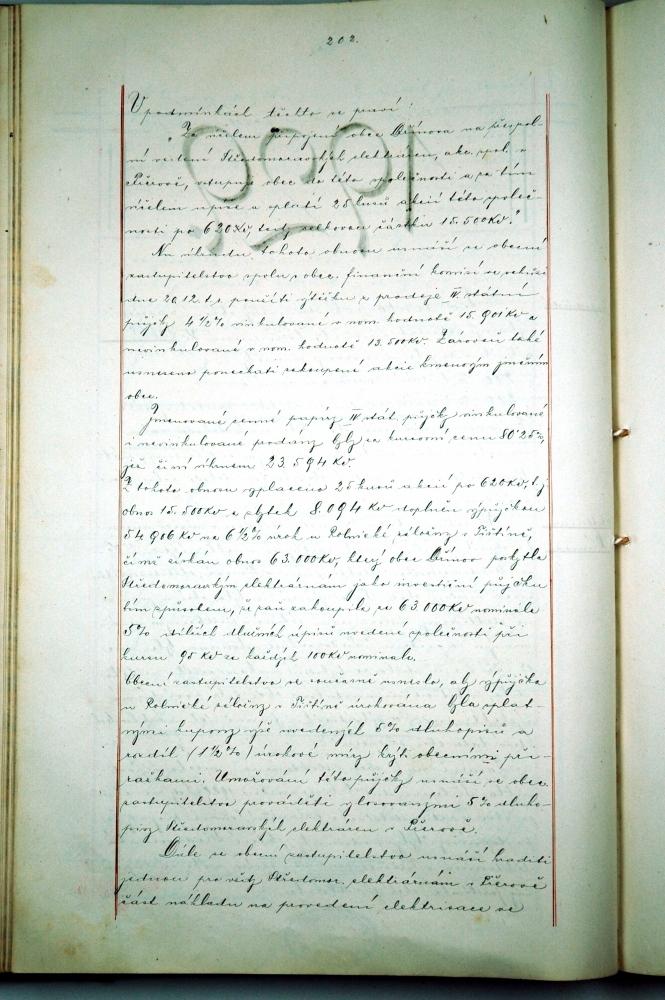 202.
V podmínkách těchto se praví:
"Za účelem připojení obce Ořínova na přespol-
ní vedení Středomoravských elektráren, akc. spol. v
Přerově, vstupuje obec do této společnosti a za tím
účelem upíše a splatí 25 kusů akcií této společ-
nosti po 620 Kč, tedy celkovou částku 15.500 Kč."
Na úhradu tohoto obnosu usnáší se obecní
zastupitelstvo spolu s obec. finanční komisí ve schůzi
dne 20.12. t.r. použíti výtěžku z prodeje IV. státní
půjčky 4½% vinkulované v nom. hodnotě 15.901 Kč a
nevinkulované v nom. hodnotě 13.500 Kč. Zároveň také
usneseno ponechati zakoupené akcie kmenovým jměním
obce.
Jmenované cenné papíry IV. stát. půjčky vinkulované
i nevinkulované prodány byly za kursovní cenu 80'25%,
jež činí úhrnem 23.594 Kč.
Z tohoto obnosu vyplaceno 25 kusů akcií po 620 Kč, t.j.
obnos 15.500 Kč a zbytek 8.094 Kč doplněn výpůjčkou
54.906 Kč na 6½% úrok u Rolnické záložny v Tištíně,
čímž získán obnos 63.000 Kč, který obec Ořínov poskytla
Středomoravským elektrárnám jako investiční půjčku
tím způsobem, že zaň zakoupila za 63 000 Kč nominále
5% dílčích dlužních úpisů uvedené společnosti při
kursu 95 Kč za každých 100 Kč nominale.
Obecní zastupitelstvo se současně usneslo, aby výpůjčka
u Rolnické záložny v Tištíně úrokována byla splat-
nými kupony výše uvedených 5% dluhopisů a
rozdíl (1½%) úrokové míry kryti obecními při-
rážkami. Umořování této půjčky usnáší se obec.
zastupitelstvo prováděti vylosovanými 5% dluho-
pisy Středomoravských elektráren v Přerově.
Dále se obecní zastupitelstvo usnáší hraditi
jednou pro vždy Středomor. elektrárnám v Přerově
část nákladu na provedení elektrisace ve